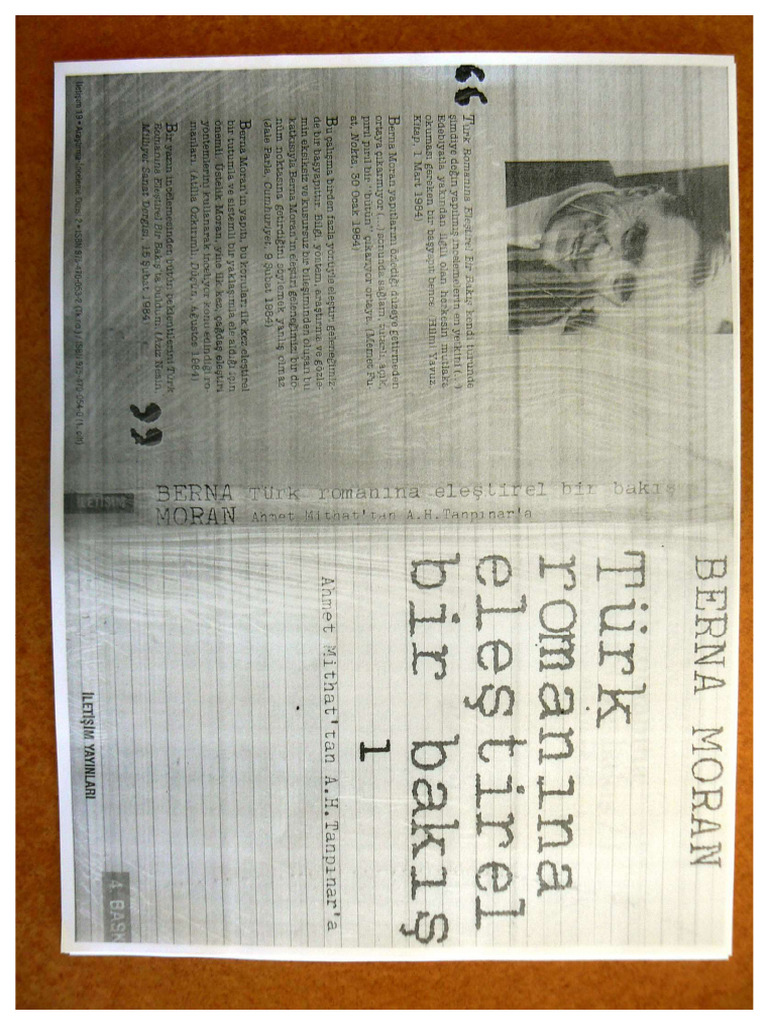 BERNA MORAN
Türk
romanına
eleştirel
bir bakış
1
Ahmet Mithat'tan A.H.Tanpınar'a
İLETİŞİM YAYINLARI
4. BASK
BERNA
MORAN
Türk romanına eleştirel bir bakış
Ahmet Mithat'tan A.H.Tanpınar'a
İLETİŞİM
“
Türk Romanına Eleştirel Bir Bakış kendi türünde
şimdiye değin yapılmış incelemelerin en yetkini (...)
Edebiyatla yakından ilgili olan herkesin mutlaka
okuması gereken bir başyapıt bence. (Hilmi Yavuz,
Kitap, 1 Mart 1984)
Berna Moran yapıtlarını özlediği düzeye getirmeden
ortaya çıkarmıyor (...) sonunda sağlam, tutarlı, açık,
pırıl pırıl bir "bütün" çıkarıyor ortaya. (Memet Fu-
at, Nokta, 30 Ocak 1984)
Bu çalışma birden fazla yönüyle eleştiri geleneğimiz-
de bir başyapıttır. Bilgi, yöntem, araştırma ve gözle-
min eksiksiz ve kusursuz bir bileşiminden oluşan bu
katkısıyla Berna Moran'ın eleştiri geleneğimizi bir dö-
nüm noktasına getirdiğini söylemek yanlış olmaz.
(Jale Parla, Cumhuriyet, 9 Şubat 1984)
Berna Moran'ın yapıtı, bu konuları ilk kez eleştirel
bir tutumla ve sistemli bir yaklaşımla ele aldığı için
önemli. Üstelik Moran, yine ilk kez, çağdaş eleştiri
yöntemlerini kullanarak inceliyor konu edindiği ro-
manları. (Atilla Özkırımlı, Düşün, Ağustos 1984)
Bir yazın incelemesinden bütün beklentilerimi Türk
Romanına Eleştirel Bir Bakış'ta buldum. (Aziz Nesin,
Milliyet Sanat Dergisi, 15 Şubat 1984
”
İletişim 19 • Araştırma - İnceleme Dizisi